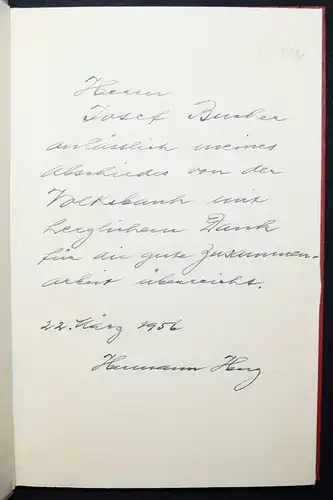 Herrn
Josef Bucher
anlässlich meines
Abschiedes von der
Volksbank mit
herzlichem Dank
für die gute Zusammen-
arbeit überreicht.
22. März 1956
Hermann